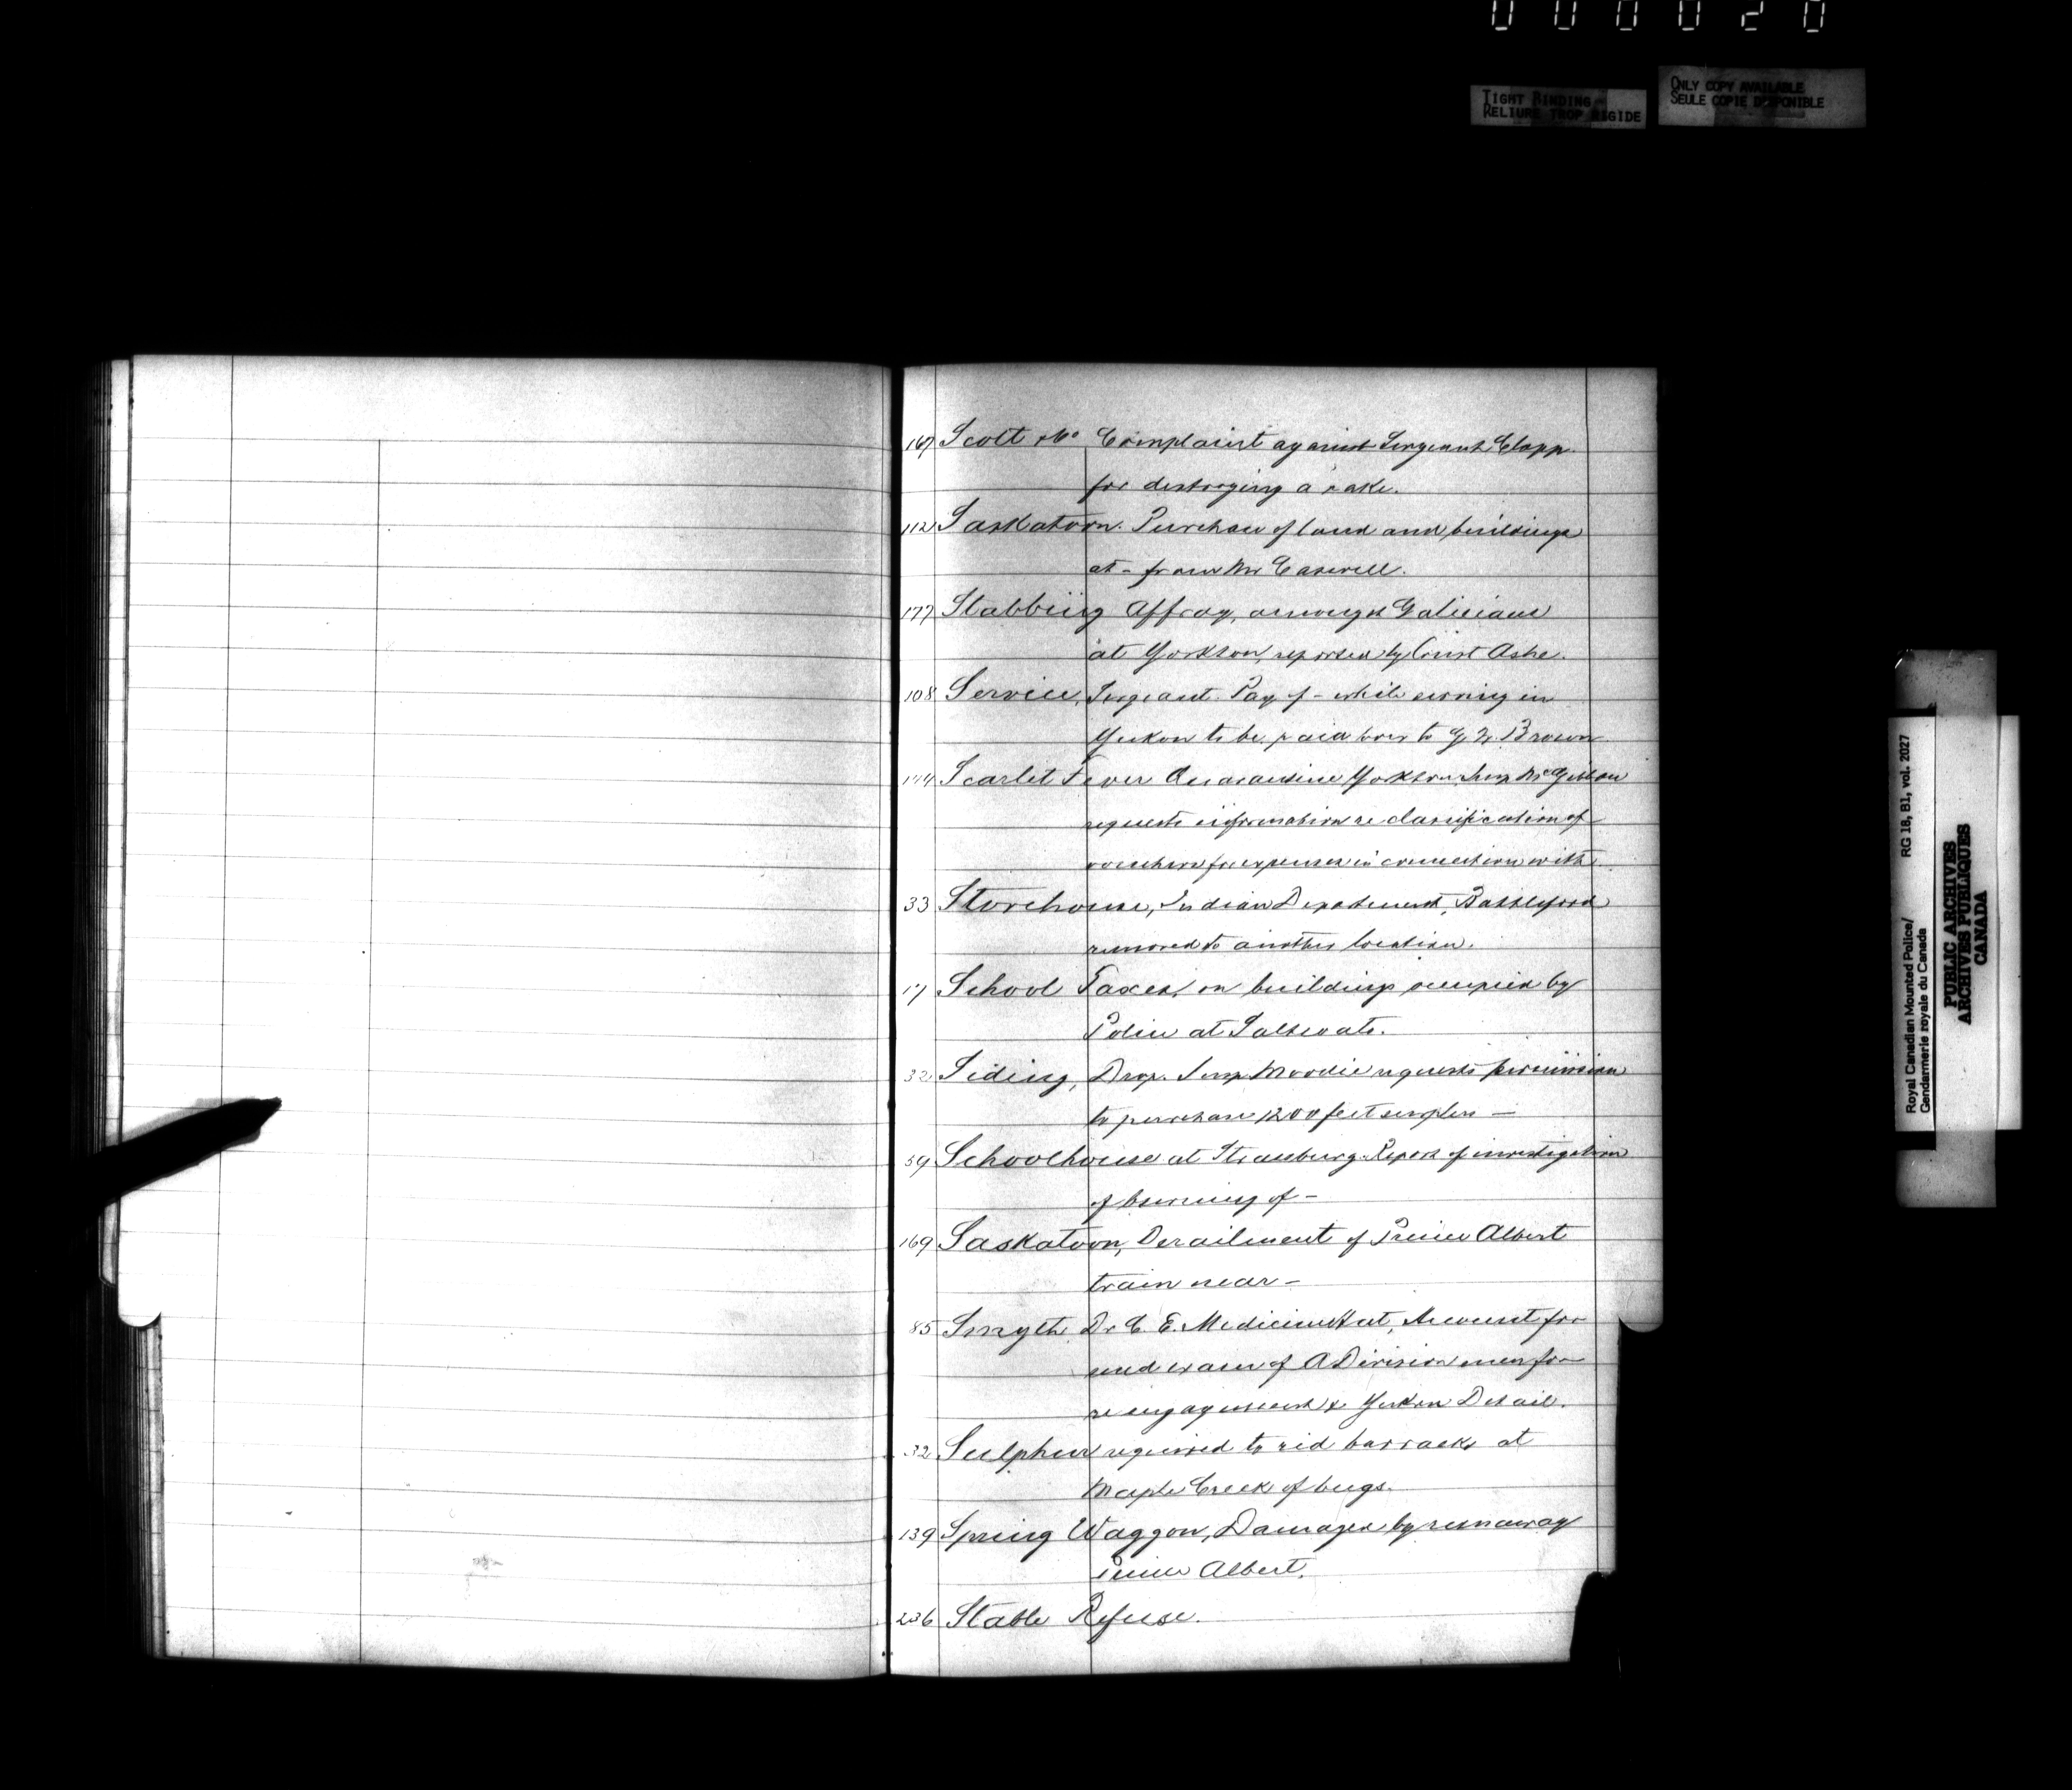 000020
TIGHT BINDING
RELIURE TROP RIGIDE
ONLY COPY AVAILABLE
SEULE COPIE DISPONIBLE
167 Scott & Co Complaint against Sergeant Clapp
for destroying a rake.
112 Saskatoon. Purchase of land and buildings
at - from Mr Caswell.
177 Stabbing Affray, amongst Galicians
at Yorkton, reported by Const Ashe.
108 Service, Sergeant. Pay of - while serving in
Yukon to be paid over to Brown
144 Scarlet Fever Quarantine Yorkton. Insp McGibbon
requests information re classification of
vouchers for expenses in connection with
33 Storehouse, Indian Department, Battleford
removed to another location.
17 School Taxes, on buildings occupied by
Police at Saltcoats.
32 Siding, Drop. Insp Moodie requests permission
to purchase 1200 feet surplus —
59 Schoolhouse at Strassburg. Report of investigation
of burning of -
169 Saskatoon, Derailment of Prince Albert
train near -
85 Smyth, Dr C. E. Medicine Hat, Account for
med exam of A Division men for
re engagement & Yukon Detail.
32 Sulphur required to rid barracks at
Maple Creek of bugs.
139 Spring Waggon, Damaged by runaway
Prince Albert.
236 Stable Refuse.
Royal Canadian Mounted Police/ RG 18, B1, vol. 2027
Gendarmerie royale du Canada
PUBLIC ARCHIVES
ARCHIVES PUBLIQUES
CANADA